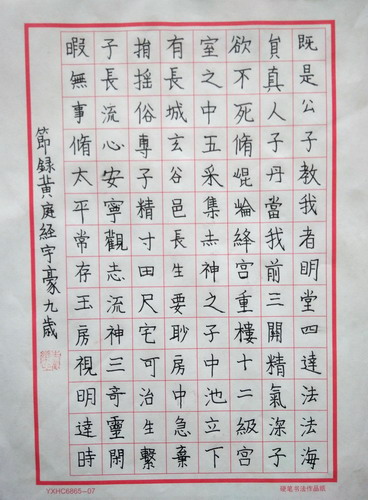 既是公子教我者明堂四達法法海
員真人子丹當我前三關精氣深子
欲不死脩崐崘絳宮重樓十二級宮
室之中五采集赤神之子中池立下
有長城玄谷邑長生要眇房中急棄
捐搖俗專子精寸田尺宅可治生繫
子長流心安寧觀志流神三奇靈閑
暇無事脩太平常存玉房視明達時
節録黃庭經宇豪九歲
YXHC6865-07
硬笔书法作品纸